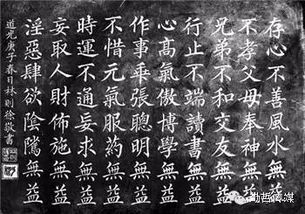 存心不善風水無益
不孝父母奉神無益
兄弟不和交友無益
行止不端讀書無益
心髙氣傲博學無益
作事乖張聰明無益
不惜元氣服藥無益
時運不通妄求無益
妄取人財佈施無益
淫惡肆欲陰騭無益
道光庚子春日林則徐敬書